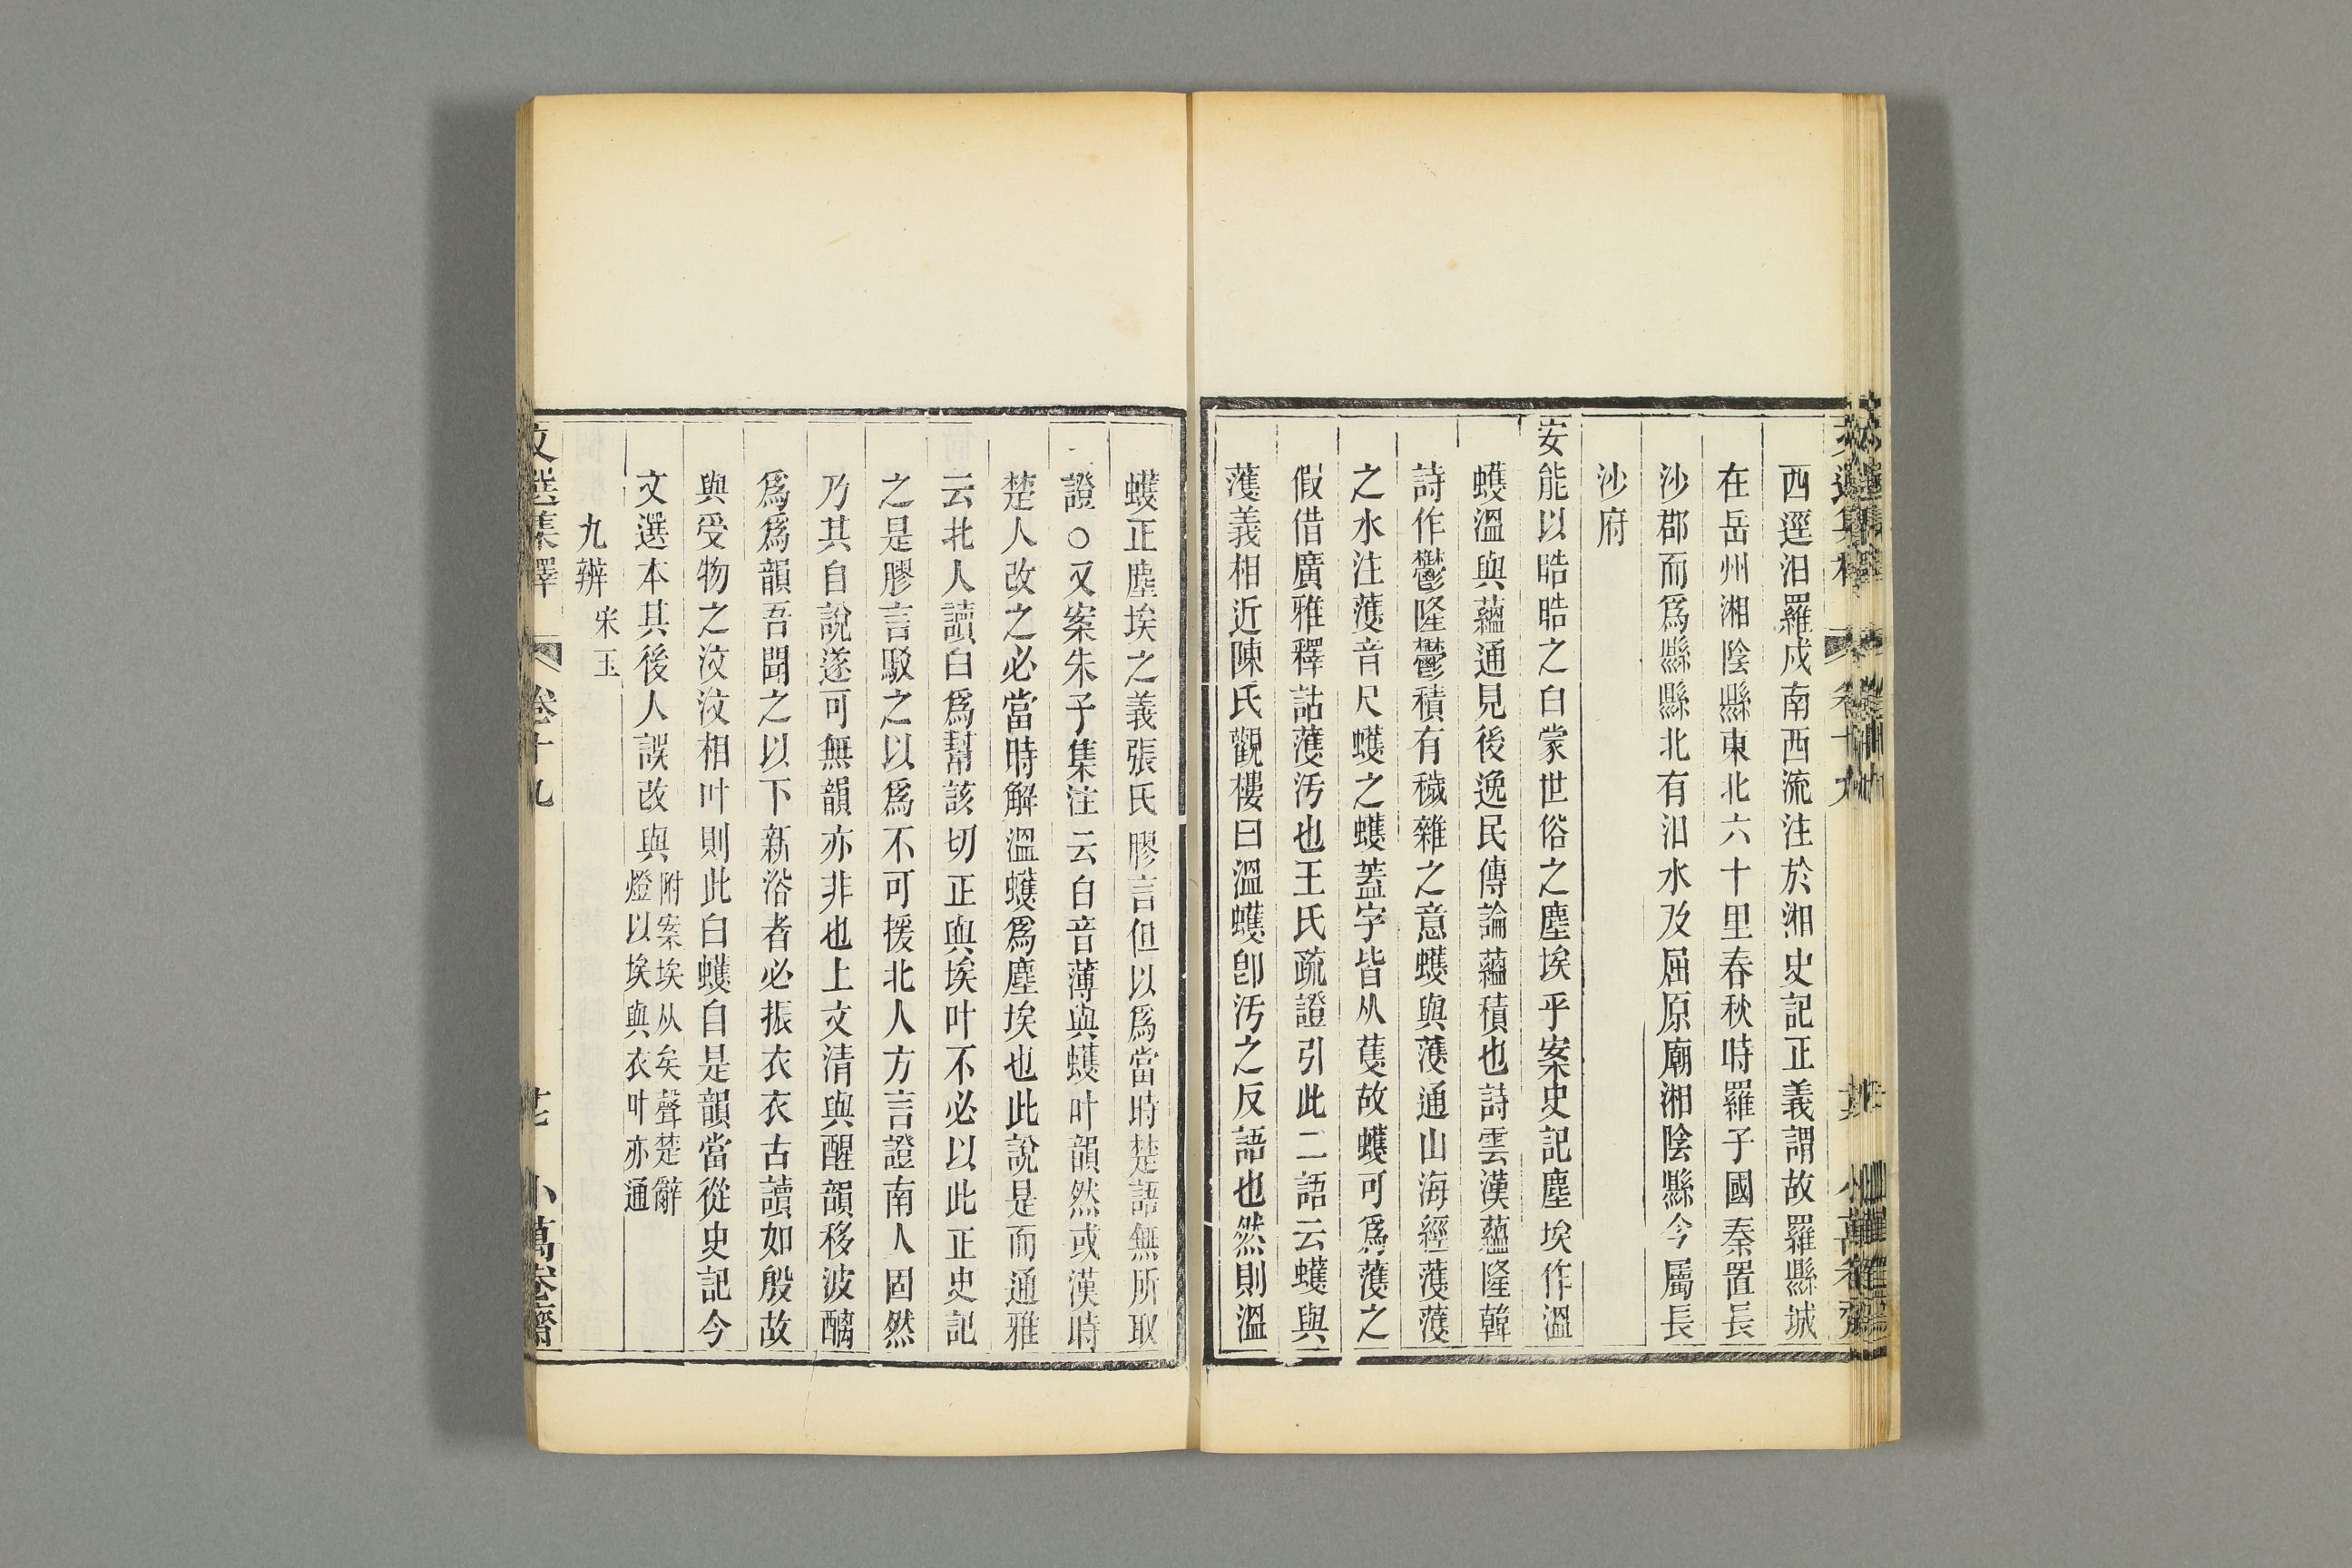 西逕汨羅戍南西流注於湘史記正義謂故羅縣城
在岳州湘陰縣東北六十里春秋時羅子國秦置長
沙郡而爲縣縣北有汨水及屈原廟湘陰縣今屬長
沙府
安能以晧晧之白蒙世俗之塵埃乎案史記塵埃作溫
蠖溫與蘊通見後逸民傳論蘊積也詩雲漢蘊隆韓
詩作鬱隆鬱積有穢雜之意蠖與蒦通山海經蒦蒦
之水注蒦音尺蠖之蠖蓋字皆从蒦故蠖可爲蒦之
假借廣雅釋詁蒦汚也王氏疏證引此二語云蠖與
蒦義相近陳氏觀樓曰溫蠖卽汚之反語也然則溫
蠖正塵埃之義張氏膠言但以爲當時楚語無所取
證○又案朱子集注云白音薄與蠖叶韻然或漢時
楚人改之必當時解溫蠖爲塵埃也此說是而通雅
云北人讀白爲幫該切正與埃叶不必以此正史記
之是膠言駁之以爲不可援北人方言證南人固然
乃其自說遂可無韻亦非也上文淸與醒韻移波醨
爲爲韻吾聞之以下新浴者必振衣衣古讀如殷故
與受物之汶汶相叶則此白蠖自是韻當從史記今
文選本其後人誤改與附案埃从矣聲楚辭
燈以埃與衣叶亦通
九辨宋玉
文選集釋 卷十九 小萬卷齋